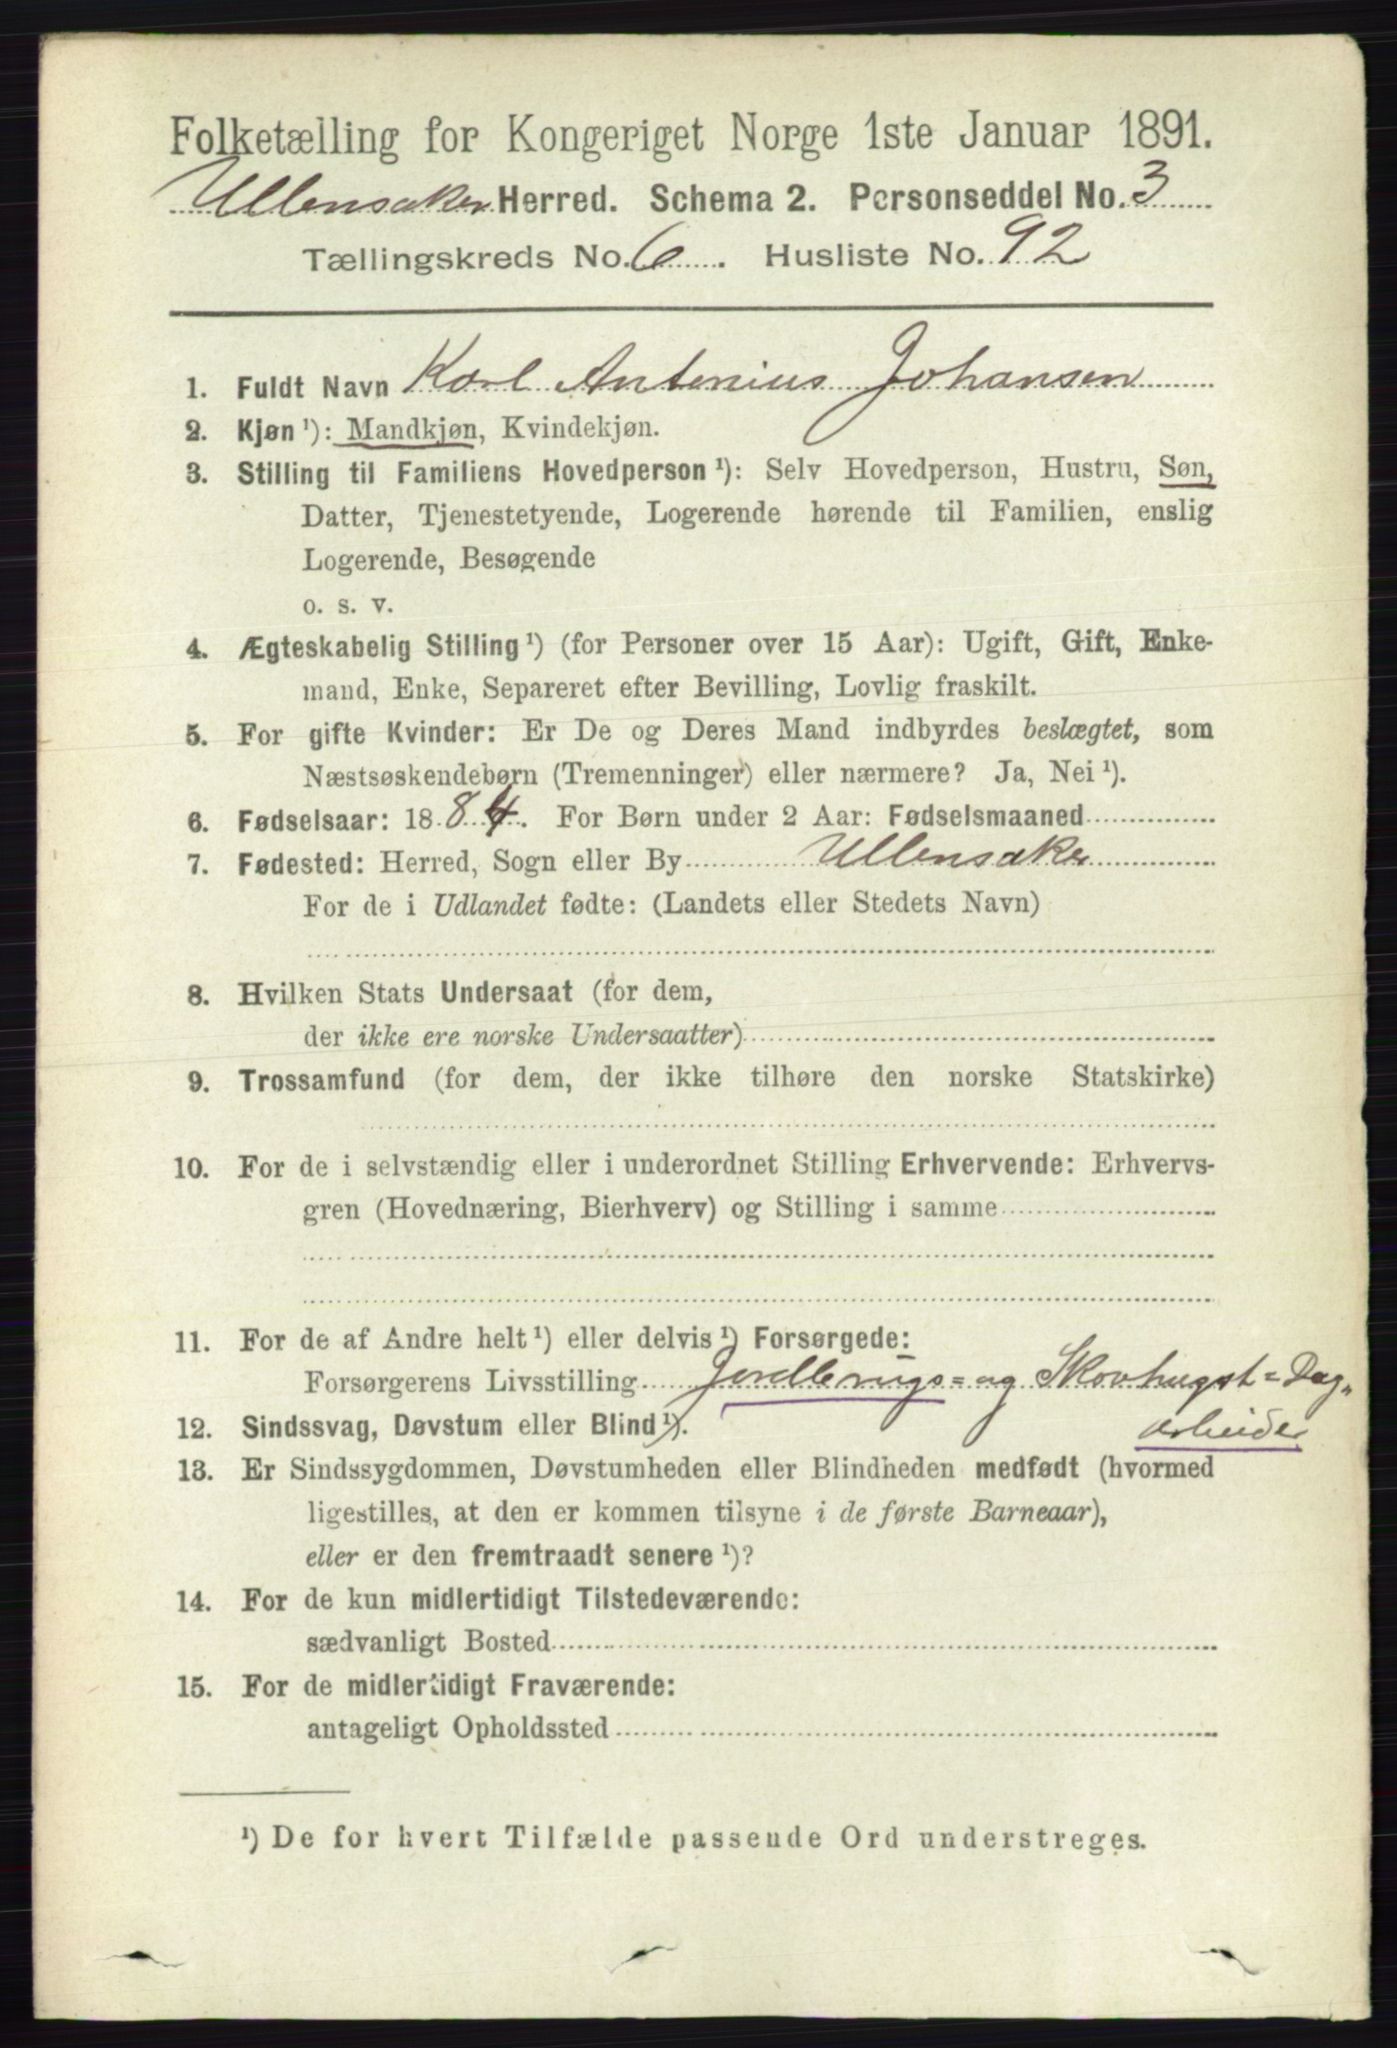 Folketælling for Kongeriget Norge 1ste Januar 1891.
Ullensaker Herred. Schema 2. Personseddel No. 3
Tællingskreds No. 6. Husliste No. 92
1. Fuldt Navn Karl Antonius Johansen
2. Kjøn ¹): Mandkjøn, Kvindekjøn.
3. Stilling til Familiens Hovedperson ¹): Selv Hovedperson, Hustru, Søn,
Datter, Tjenestetyende, Logerende hørende til Familien, enslig
Logerende, Besøgende
o. s. v.
4. Ægteskabelig Stilling ¹) (for Personer over 15 Aar): Ugift, Gift, Enke-
mand, Enke, Separeret efter Bevilling, Lovlig fraskilt.
5. For gifte Kvinder: Er De og Deres Mand indbyrdes beslægtet, som
Næstsøskendebørn (Tremenninger) eller nærmere? Ja, Nei ¹).
6. Fødselsaar: 1884. For Børn under 2 Aar: Fødselsmaaned
7. Fødested: Herred, Sogn eller By Ullensaker
For de i Udlandet fødte: (Landets eller Stedets Navn)
8. Hvilken Stats Undersaat (for dem,
der ikke ere norske Undersaatter)
9. Trossamfund (for dem, der ikke tilhøre den norske Statskirke)
10. For de i selvstændig eller i underordnet Stilling Erhvervende: Erhvervs-
gren (Hovednæring, Bierhverv) og Stilling i samme
11. For de af Andre helt ¹) eller delvis ¹) Forsørgede:
Forsørgerens Livsstilling Jordbrugs= og Skovhugst=Dag„
arbeider
12. Sindssvag, Døvstum eller Blind ¹).
13. Er Sindssygdommen, Døvstumheden eller Blindheden medfødt (hvormed
ligestilles, at den er kommen tilsyne i de første Barneaar),
eller er den fremtraadt senere ¹)?
14. For de kun midlertidigt Tilstedeværende:
sædvanligt Bosted
15. For de midlertidigt Fraværende:
antageligt Opholdssted
¹) De for hvert Tilfælde passende Ord understreges.